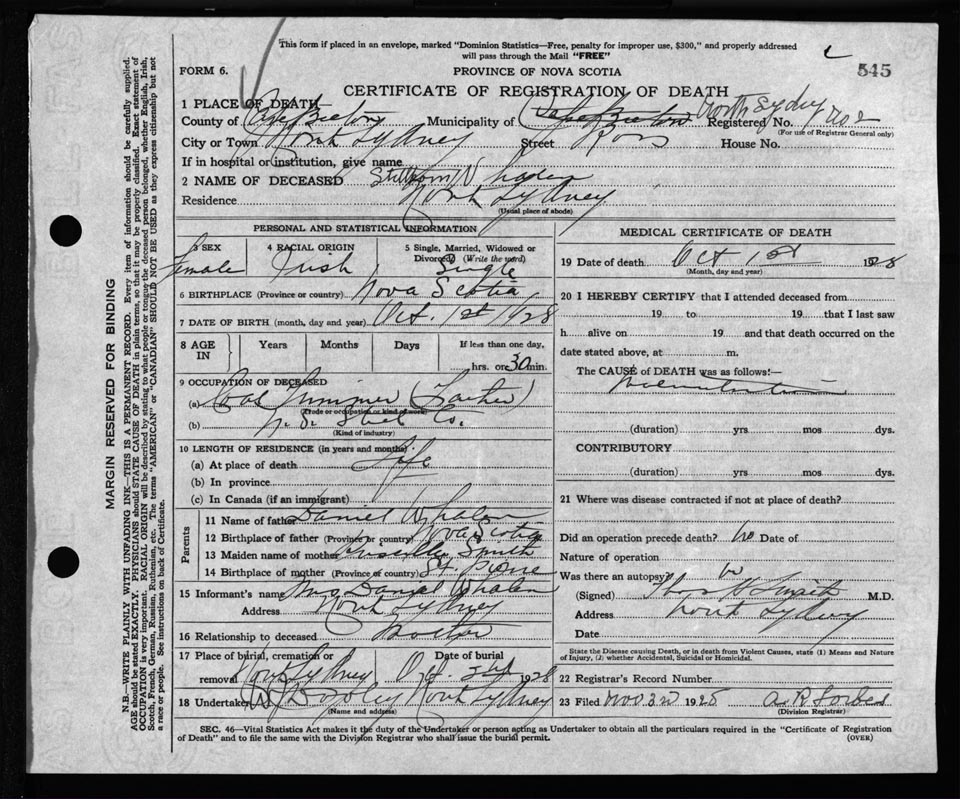 This form if placed in an envelope, marked "Dominion Statistics—Free, penalty for improper use, $300," and properly addressed
will pass through the Mail "FREE"
545
FORM 6.
PROVINCE OF NOVA SCOTIA
CERTIFICATE OF REGISTRATION OF DEATH
1 PLACE OF DEATH
County of Cape Breton Municipality of Cape Breton Registered No. North Sydney
(For use of Registrar General only)
City or Town North Sydney Street Ross House No.
If in hospital or institution, give name
2 NAME OF DECEASED Stillborn Whalen
Residence North Sydney
(Usual place of abode)
PERSONAL AND STATISTICAL INFORMATION
3 SEX Female
4 RACIAL ORIGIN Irish
5 Single, Married, Widowed or Divorced (Write the word) Single
6 BIRTHPLACE (Province or country) Nova Scotia
7 DATE OF BIRTH (month, day and year) Oct. 1st 1928
8 AGE IN Years Months Days If less than one day, hrs. or 30 min.
9 OCCUPATION OF DECEASED
(a) Coal (Father)
(Trade or occupation or kind of work)
(b) N. S. Steel Co.
(Kind of industry)
10 LENGTH OF RESIDENCE (in years and months)
(a) At place of death Life
(b) In province
(c) In Canada (if an immigrant)
Parents
11 Name of father Daniel Whalen
12 Birthplace of father (Province or country) Nova Scotia
13 Maiden name of mother Priscilla Smith
14 Birthplace of mother (Province or country) St. Pierre
15 Informant's name Mrs Daniel Whalen
Address North Sydney
16 Relationship to deceased
17 Place of burial, cremation or removal North Sydney
Date of burial Oct. 2nd 1928
18 Undertaker North Sydney
(Name and address)
MEDICAL CERTIFICATE OF DEATH
19 Date of death Oct 1st 1928
(Month, day and year)
20 I HEREBY CERTIFY that I attended deceased from
19 to 19 that I last saw
h alive on 19 and that death occurred on the
date stated above, at m.
The CAUSE of DEATH was as follows:—
(duration) yrs mos dys.
CONTRIBUTORY
(duration) yrs mos dys.
21 Where was disease contracted if not at place of death?
Did an operation precede death? no Date of
Nature of operation
Was there an autopsy?
(Signed) M.D.
Address North Sydney
Date
State the Disease causing Death, or in death from Violent Causes, state (1) Means and Nature
of Injury, (2) whether Accidental, Suicidal or Homicidal.
22 Registrar's Record Number
23 Filed Nov 3rd 1928
(Division Registrar)
SEC. 46—Vital Statistics Act makes it the duty of the Undertaker or person acting as Undertaker to obtain all the particulars required in the "Certificate of Registration
of Death" and to file the same with the Division Registrar who shall issue the burial permit. (OVER)
MARGIN RESERVED FOR BINDING
N.B.—WRITE PLAINLY WITH UNFADING INK—THIS IS A PERMANENT RECORD. Every item of information should be carefully supplied.
AGE should be stated EXACTLY. PHYSICIANS should STATE CAUSE OF DEATH in plain terms, so that it may be properly classified. Exact statement of
OCCUPATION is very important. RACIAL ORIGIN will be described by stating to what people or tongue the deceased person belonged, whether English, Irish,
Scotch, French, German, Russian, Ruthenian, etc. The terms "AMERICAN" or "CANADIAN" SHOULD NOT BE USED as they express citizenship but not
a race or people. See instructions on back of Certificate.